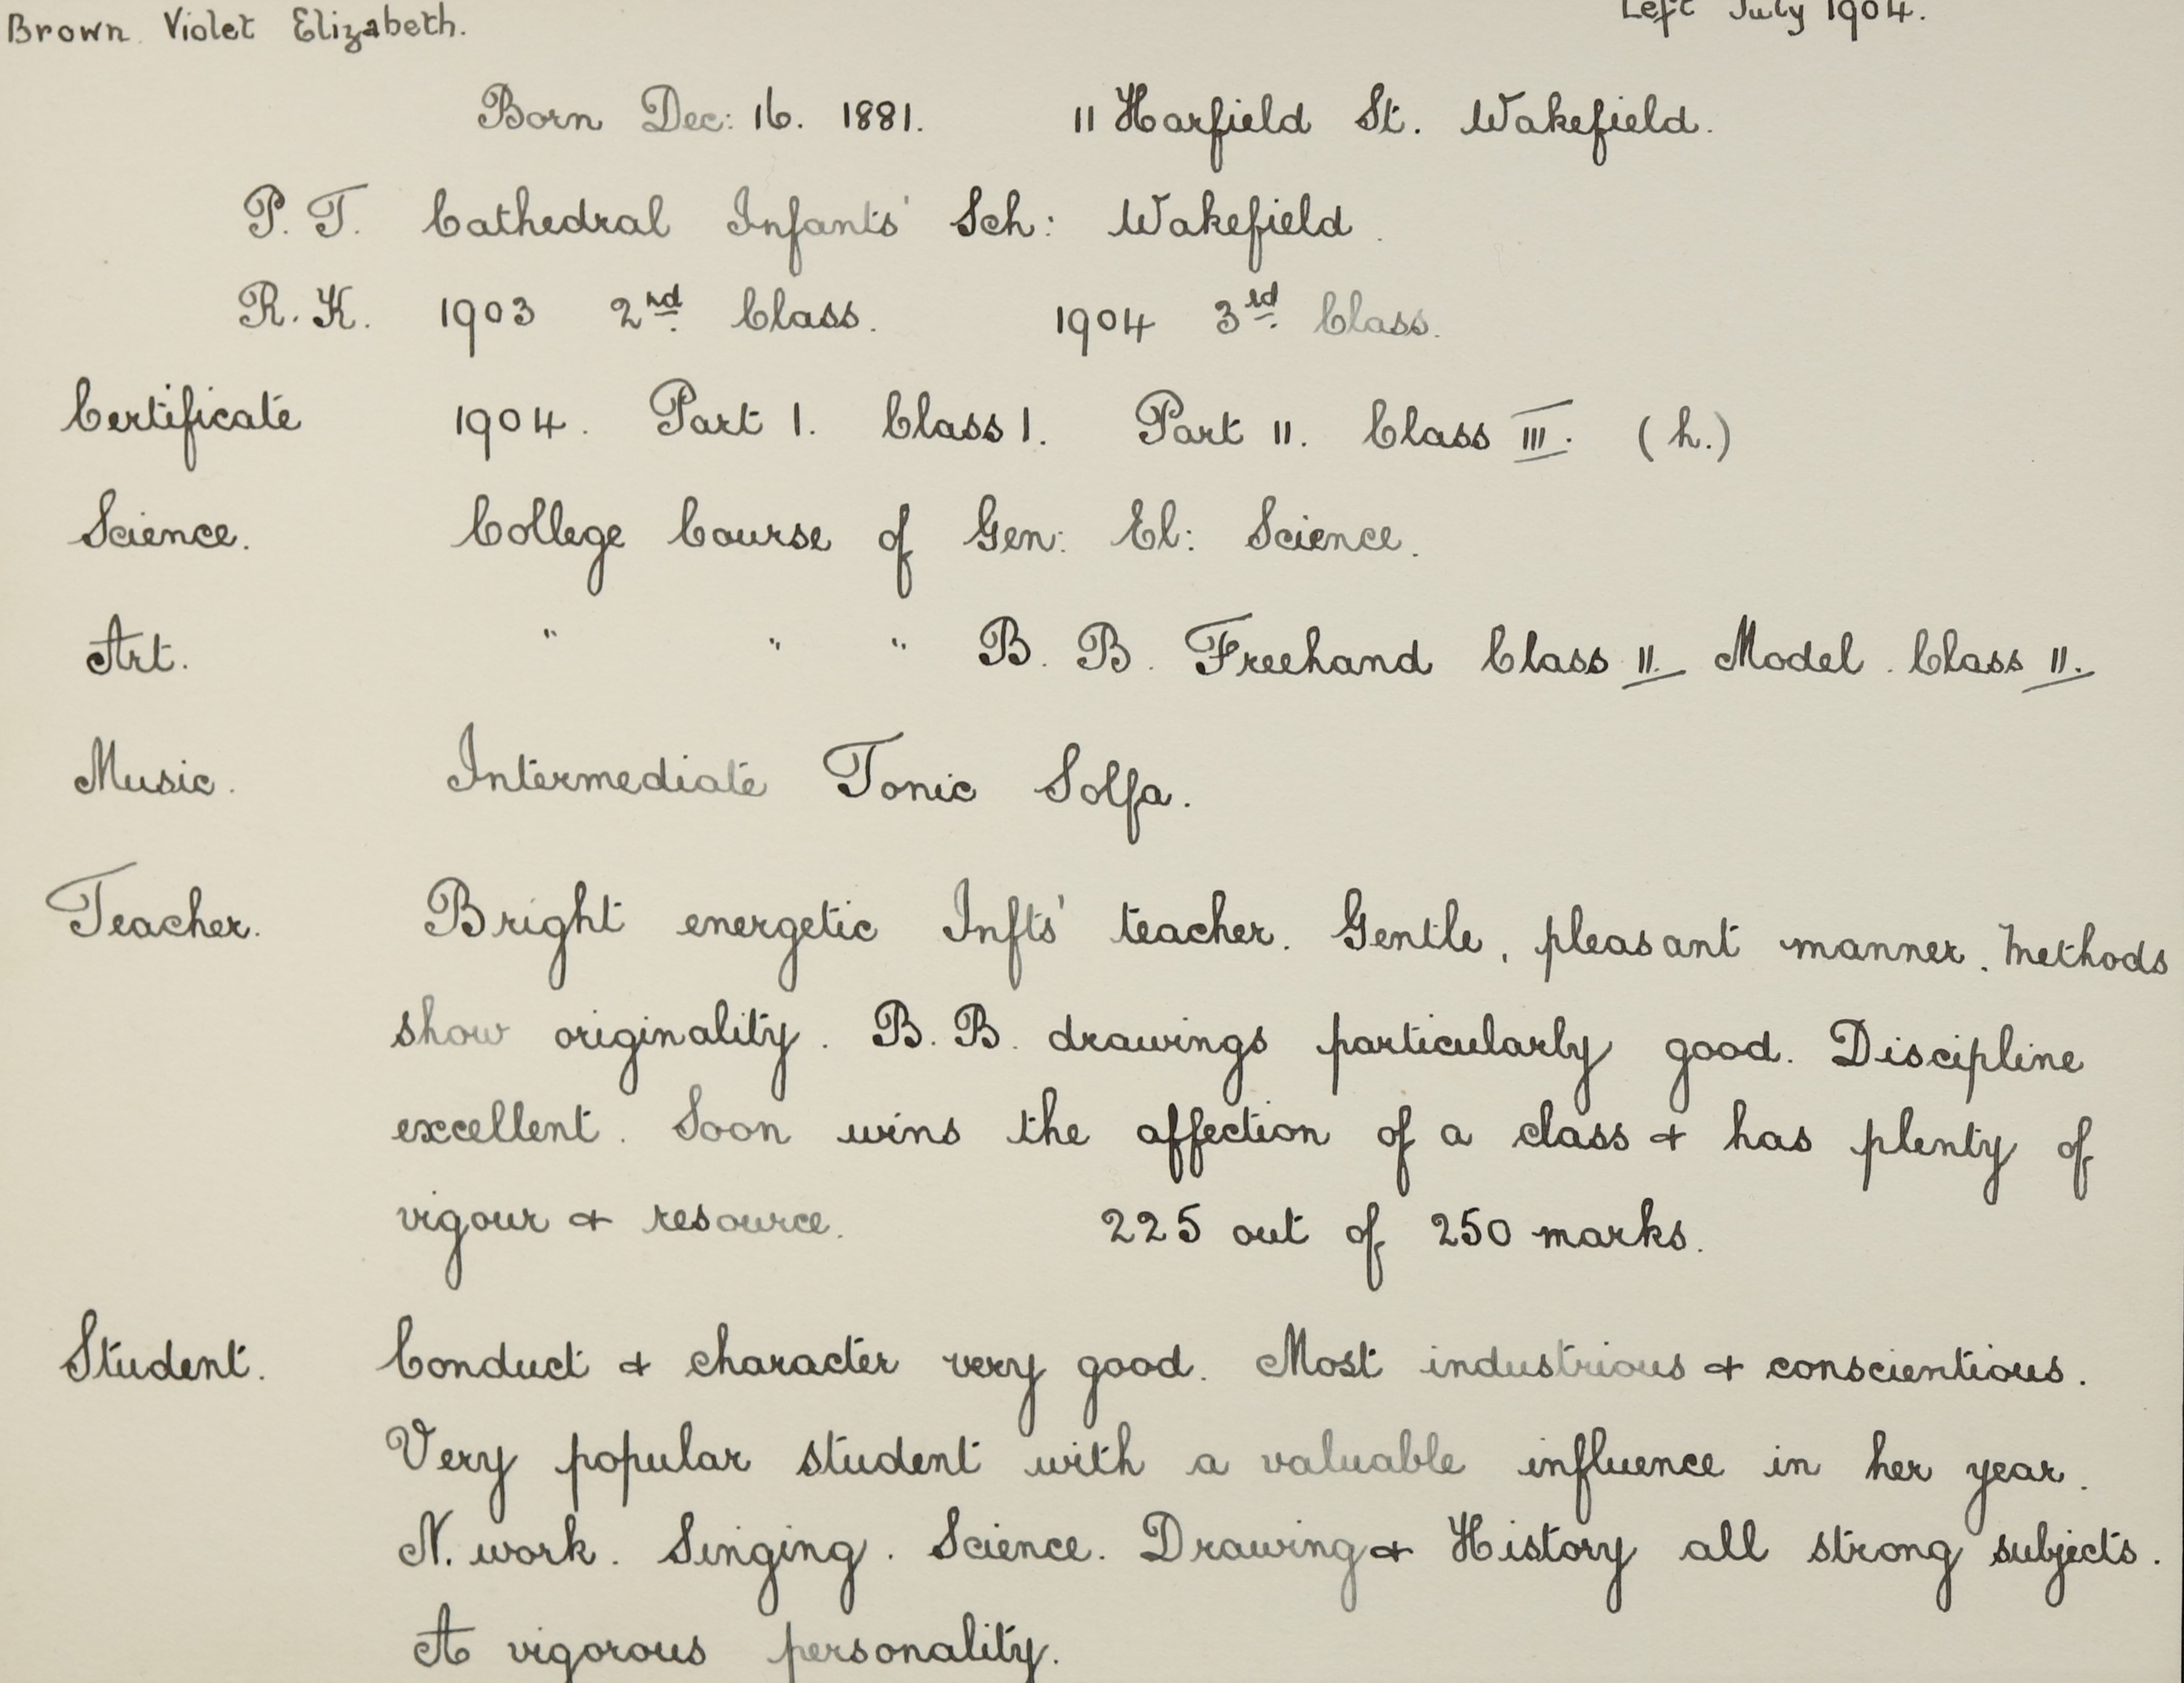 Brown Violet Elizabeth. Left July 1904.
Born Dec: 16. 1881. 11 Harfield St. Wakefield.
P. T. Cathedral Infants' Sch: Wakefield.
R. K. 1903 2nd. Class. 1904 3rd. Class.
Certificate 1904. Part I. Class I. Part II. Class III. (h.)
Science. College Course of Gen: El: Science.
Art. " " " B. B. Freehand Class II. Model. Class II.
Music. Intermediate Tonic Solfa.
Teacher. Bright energetic Infts' teacher. Gentle, pleasant manner. Methods
show originality. B. B. drawings particularly good. Discipline
excellent. Soon wins the affection of a class & has plenty of
vigour & resource. 225 out of 250 marks.
Student. Conduct & character very good. Most industrious & conscientious.
Very popular student with a valuable influence in her year.
N. work. Singing. Science. Drawing & History all strong subjects.
A vigorous personality.